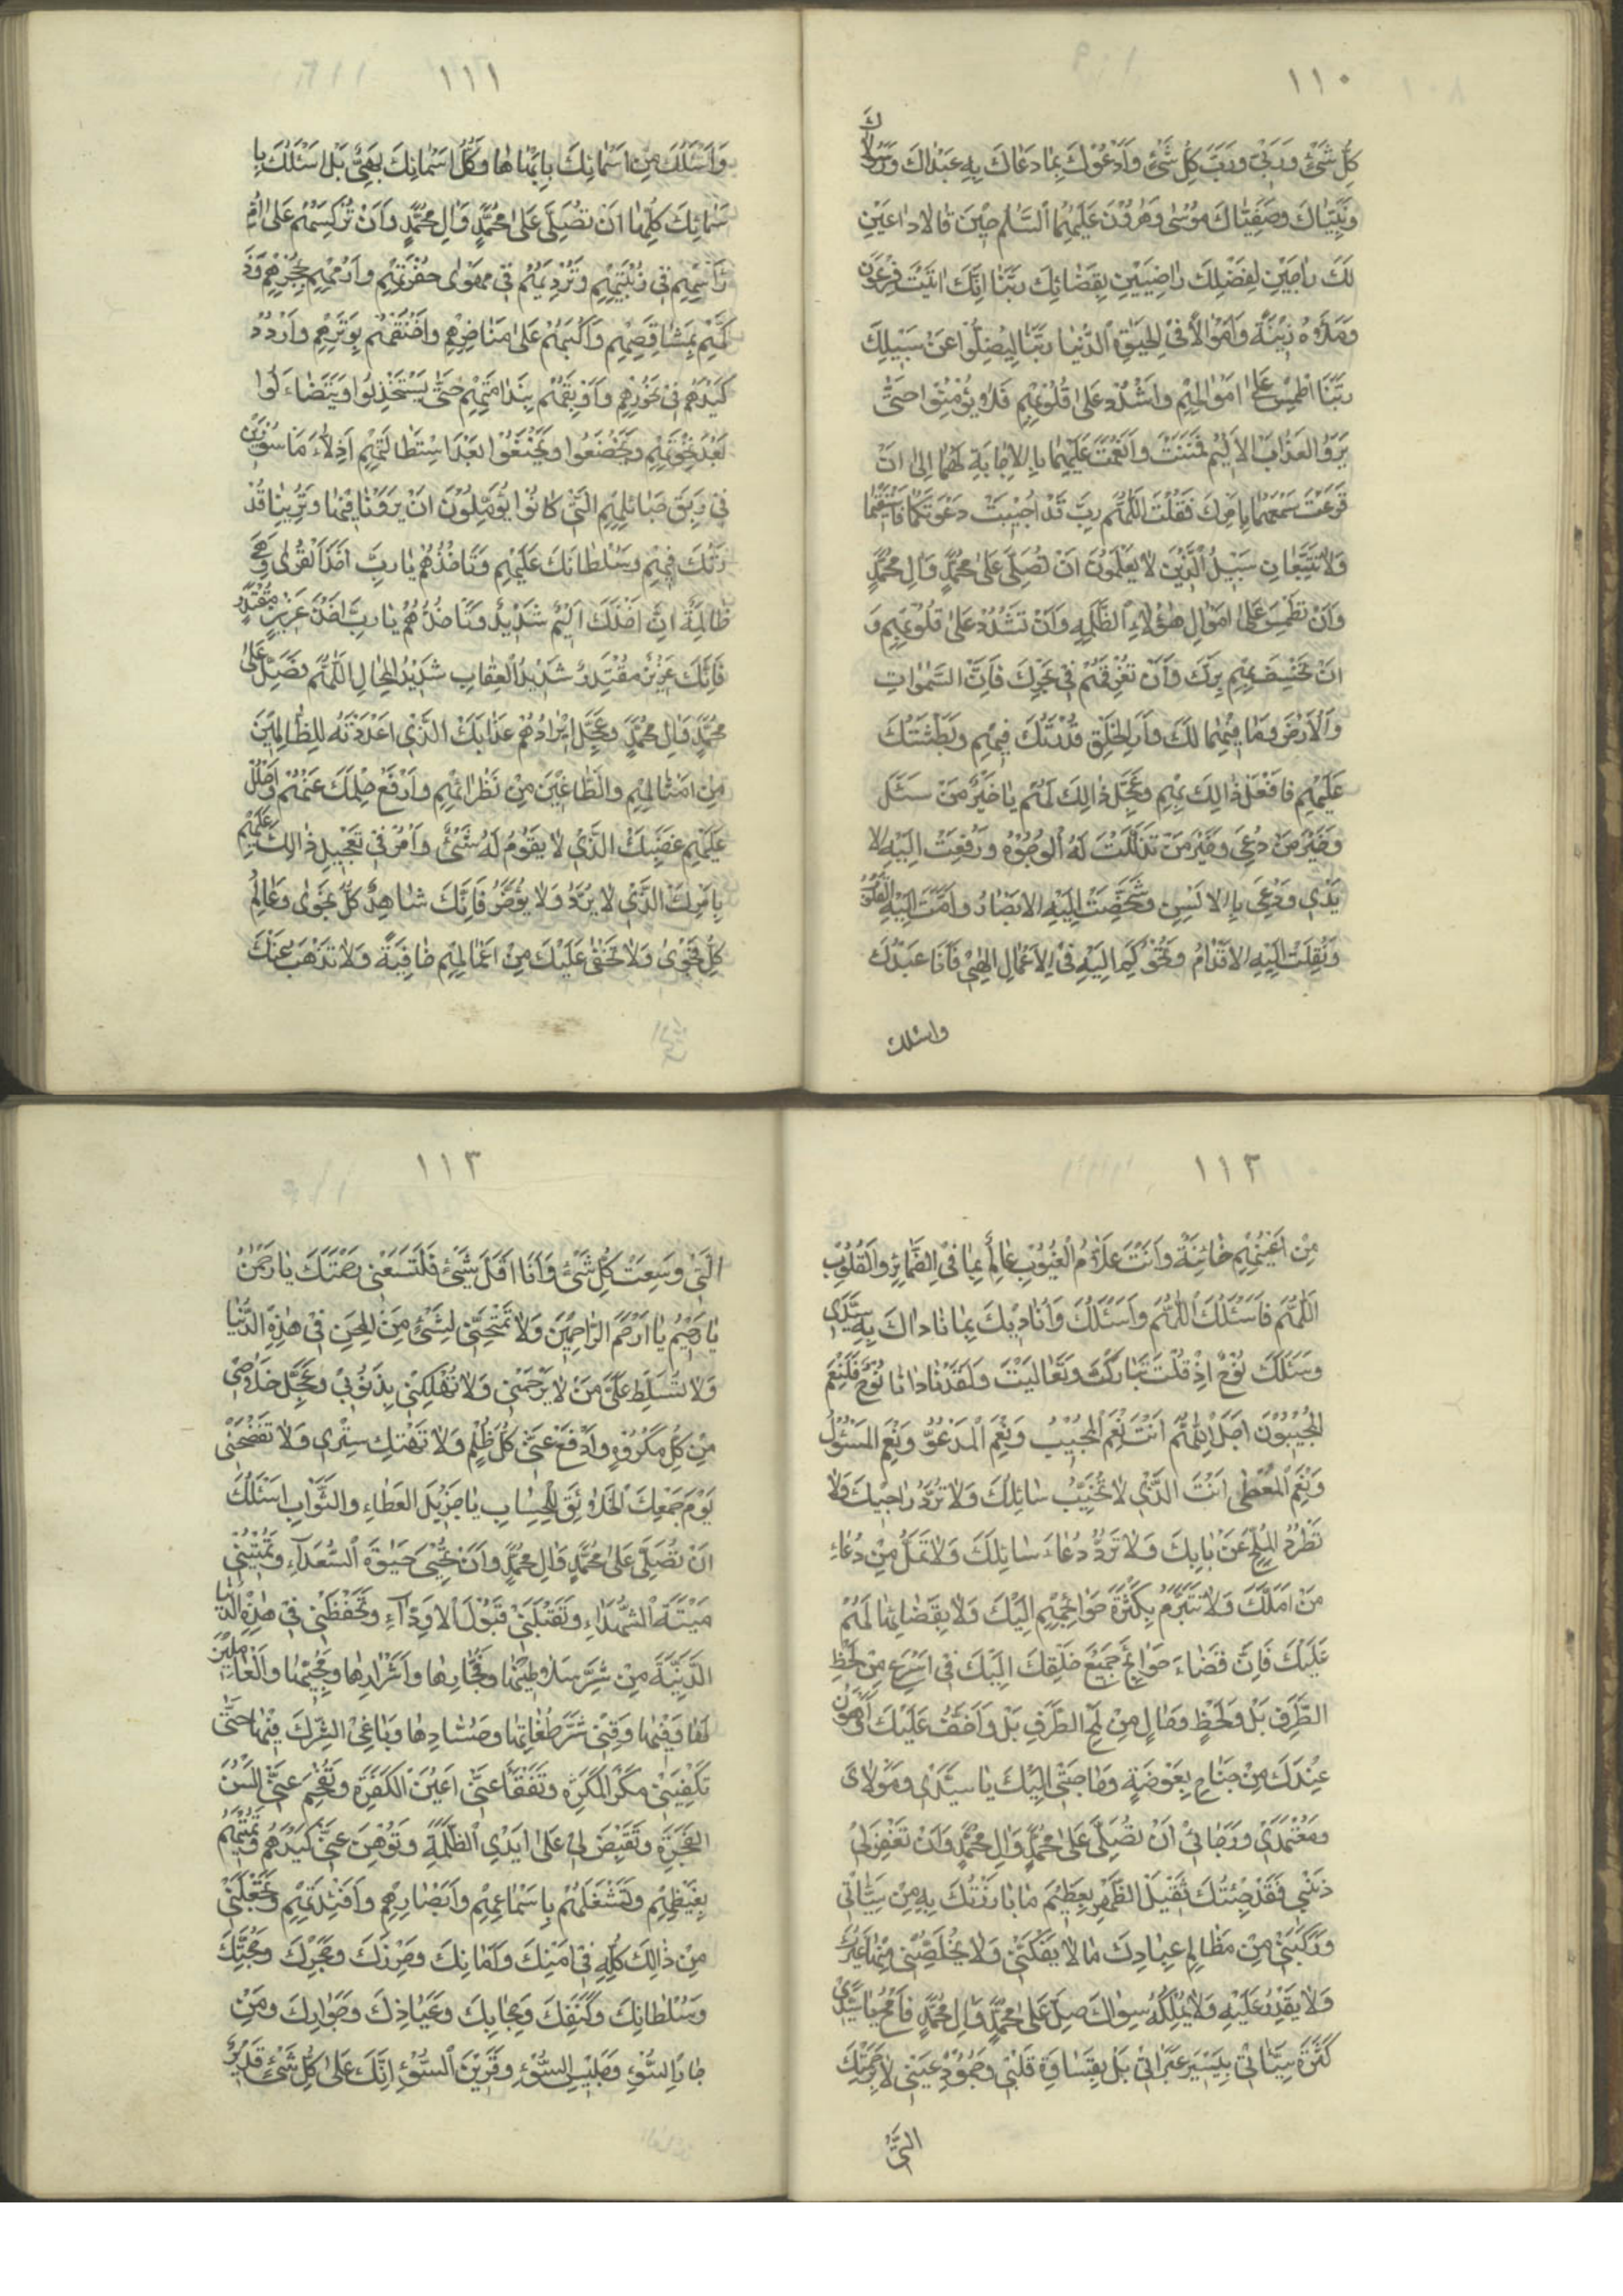 ١١٠
كُلِّ شَيْءٍ وَرَبِّي وَرَبَّ كُلِّ شَيْءٍ وَأَدْعُوكَ بِمَا دَعَاكَ بِهِ عَبْدَاكَ وَرَسُولاكَ
وَنَبِيَّاكَ وَصَفِيَّاكَ مُوسَى وَهَرُونَ عَلَيْهِمَا السَّلٰمُ حِينَ قَالا دَاعِيَيْنِ
لَكَ رَاجِيَيْنِ لِفَضْلِكَ رَاضِيَيْنِ بِقَضَائِكَ رَبَّنَا إِنَّكَ اتَيْتَ فِرْعَوْنَ
وَمَلَأَهُ زِينَةً وَأَمْوَالًا فِي الْحَيٰوةِ الدُّنْيَا رَبَّنَا لِيُضِلُّوا عَنْ سَبِيلِكَ
رَبَّنَا اطْمِسْ عَلَى أَمْوَالِهِمْ وَاشْدُدْ عَلَى قُلُوبِهِمْ فَلَا يُؤْمِنُوا حَتَّى
يَرَوُا الْعَذَابَ الْأَلِيمَ فَمَنَنْتَ وَأَنْعَمْتَ عَلَيْهِمَا بِالْإِجَابَةِ لَهُمَا إِلَى أَنْ
قَرَعْتَ سَمْعَهُمَا بِأَمْرِكَ فَقُلْتَ اللّٰهُمَّ رَبِّ قَدْ أُجِيبَتْ دَعْوَتُكُمَا فَاسْتَقِيمَا
وَلَا تَتَّبِعَانِ سَبِيلَ الَّذِينَ لَا يَعْلَمُونَ أَنْ تُصَلِّيَ عَلَى مُحَمَّدٍ وَآلِ مُحَمَّدٍ
وَأَنْ تَطْمِسَ عَلَى أَمْوَالِ هٰؤُلَاءِ الظَّلَمَةِ وَأَنْ تَشْدُدَ عَلَى قُلُوبِهِمْ وَ
أَنْ تَخْسِفَ بِهِمْ بَرَّكَ وَأَنْ تُغْرِقَهُمْ فِي بَحْرِكَ فَإِنَّ السَّمٰوَاتِ
وَالْأَرْضَ وَمَا فِيهِمَا لَكَ وَأَرِ الْخَلْقَ قُدْرَتَكَ فِيهِمْ وَبَطْشَتَكَ
عَلَيْهِمْ فَافْعَلْ ذٰلِكَ بِهِمْ وَعَجِّلْ ذٰلِكَ لَهُمْ يَا خَيْرَ مَنْ سُئِلَ
وَخَيْرَ مَنْ دُعِيَ وَخَيْرَ مَنْ تَذَلَّلَتْ لَهُ الْوُجُوهُ وَرُفِعَتْ إِلَيْهِ الا
يْدِي وَدُعِيَ بِالْأَلْسُنِ وَشَخَصَتْ إِلَيْهِ الْأَبْصَارُ وَأَمَّتْ إِلَيْهِ الْقُلُوبُ
وَنُقِلَتْ إِلَيْهِ الْأَقْدَامُ وَتُحُوكِمَ إِلَيْهِ فِي الْأَعْمَالِ إِلٰهِي فَأَنَا عَبْدُكَ
واسئلك
١١١
وَأَسْئَلُكَ مِنْ أَسْمَائِكَ بِأَبْهَاهَا وَكُلُّ أَسْمَائِكَ بَهِيٌّ بَلْ أَسْئَلُكَ بِا
سْمَائِكَ كُلِّهَا أَنْ تُصَلِّيَ عَلَى مُحَمَّدٍ وَآلِ مُحَمَّدٍ وَأَنْ تُرْكِسَهُمْ عَلَى أُمِّ
رَأْسِهِمْ فِي زُبْيَتِهِمْ وَتُرْدِيَهُمْ فِي مَهْوَى حُفْرَتِهِمْ وَارْمِهِمْ بِحَجَرِهِمْ وَذَ
كِّهِمْ بِمَشَاقِصِهِمْ وَاكْبُبْهُمْ عَلَى مَنَاخِرِهِمْ وَاخْنُقْهُمْ بِوَتَرِهِمْ وَارْدُدْ
كَيْدَهُمْ فِي نُحُورِهِمْ وَأَوْبِقْهُمْ بِنَدَامَتِهِمْ حَتَّى يَسْتَخْذِلُوا وَيَتَضَاءَلُوا
بَعْدَ نَخْوَتِهِمْ وَيَخْضَعُوا وَيَخْشَعُوا بَعْدَ اسْتِطَالَتِهِمْ أَذِلَّاءَ مَأْسُورِينَ
فِي رِبَقِ حَبَائِلِهِمُ الَّتِي كَانُوا يُؤَمِّلُونَ أَنْ يَرَوْنَا فِيهَا وَتُرِيَنَا قُدْ
رَتَكَ فِيهِمْ وَسُلْطَانَكَ عَلَيْهِمْ وَتَأْخُذَهُمْ يَا رَبِّ أَخْذَ الْقُرَى وَهِيَ
ظَالِمَةٌ إِنَّ أَخْذَكَ أَلِيمٌ شَدِيدٌ وَتَأْخُذَهُمْ يَا رَبِّ أَخْذَ عَزِيزٍ مُقْتَدِرٍ
فَإِنَّكَ عَزِيزٌ مُقْتَدِرٌ شَدِيدُ الْعِقَابِ شَدِيدُ الْمِحَالِ اللّٰهُمَّ فَصَلِّ عَلَى
مُحَمَّدٍ وَآلِ مُحَمَّدٍ وَعَجِّلْ إِيرَادَهُمْ عَذَابَكَ الَّذِي أَعْدَدْتَهُ لِلظَّالِمِينَ
مِنْ أَمْثَالِهِمْ وَالطَّاغِينَ مِنْ نَظَرَائِهِمْ وَارْفَعْ حِلْمَكَ عَنْهُمْ وَاحْلُلْ
عَلَيْهِمْ غَضَبَكَ الَّذِي لَا يَقُومُ لَهُ شَيْءٌ وَأْمُرْ فِي تَعْجِيلِ ذٰلِكَ عَلَيْهِمْ
بِأَمْرِكَ الَّذِي لَا يُرَدُّ وَلَا يُؤَخَّرُ فَإِنَّكَ شَاهِدُ كُلِّ نَجْوَى وَعَالِمُ
كُلِّ فَحْوَى وَلَا تَخْفَى عَلَيْكَ مِنْ أَعْمَالِهِمْ خَافِيَةٌ وَلَا تَذْهَبُ عَنْكَ
١١٢
مِنْ أَعْيُنِهِمْ خَائِنَةٌ وَأَنْتَ عَلَّامُ الْغُيُوبِ عَالِمٌ بِمَا فِي الضَّمَائِرِ وَالْقُلُوبِ
اللّٰهُمَّ فَأَسْئَلُكَ اللّٰهُمَّ وَأَسْئَلُكَ وَأُنَادِيكَ بِمَا نَادَاكَ بِهِ سَيِّدِي
وَسَئَلَكَ نُوحٌ إِذْ قُلْتَ تَبَارَكْتَ وَتَعَالَيْتَ وَلَقَدْ نَادَانَا نُوحٌ فَلَنِعْمَ
الْمُجِيبُونَ أَجَلْ اللّٰهُمَّ أَنْتَ نِعْمَ الْمُجِيبُ وَنِعْمَ الْمَدْعُوُّ وَنِعْمَ الْمَسْئُولُ
وَنِعْمَ الْمُعْطِي أَنْتَ الَّذِي لَا تُخَيِّبُ سَائِلَكَ وَلَا تَرُدُّ رَاجِيكَ وَلَا
تَطْرُدُ الْمُلِحَّ عَنْ بَابِكَ وَلَا تَرُدُّ دُعَاءَ سَائِلِكَ وَلَا تَمَلُّ مِنْ دُعَاءِ
مَنْ أَمَّلَكَ وَلَا تَتَبَرَّمُ بِكَثْرَةِ حَوَائِجِهِمْ إِلَيْكَ وَلَا بِقَضَائِهَا لَهُمْ
عَلَيْكَ فَإِنَّ قَضَاءَ حَوَائِجِ جَمِيعِ خَلْقِكَ إِلَيْكَ فِي أَسْرَعِ مِنْ لَحْظِ
الطَّرْفِ بَلْ وَلَحْظٍ وَمَالٍ مِنْ لَمْحِ الطَّرْفِ بَلْ وَأَخَفُّ عَلَيْكَ وَأَهْوَنُ
عِنْدَكَ مِنْ جَنَاحِ بَعُوضَةٍ وَحَاجَتِي إِلَيْكَ يَا سَيِّدِي وَمَوْلَايَ
وَمُعْتَمَدِي وَرَجَائِي أَنْ تُصَلِّيَ عَلَى مُحَمَّدٍ وَآلِ مُحَمَّدٍ وَأَنْ تَغْفِرَ لِي
ذَنْبِي فَقَدْ جِئْتُكَ ثَقِيلَ الظَّهْرِ بِعَظِيمِ مَا بَارَزْتُكَ بِهِ مِنْ سَيِّئَاتِي
وَرَكِبَنِي مِنْ مَظَالِمِ عِبَادِكَ مَا لَا يَفُكُّنِي وَلَا يُخَلِّصُنِي مِنْهَا غَيْرُكَ
وَلَا يَقْدِرُ عَلَيْهِ وَلَا يَمْلِكُهُ سِوَاكَ صَلِّ عَلَى مُحَمَّدٍ وَآلِ مُحَمَّدٍ فَامْحُ يَا سَيِّدِي
كَثْرَةَ سَيِّئَاتِي بِيَسِيرِ عَبَرَاتِي بَلْ بِقَسَاوَةِ قَلْبِي وَجُمُودِ عَيْنِي لَا بِرَحْمَتِكَ
الَّتِي
١١٣
الَّتِي وَسِعَتْ كُلَّ شَيْءٍ وَأَنَا أَقَلُّ شَيْءٍ فَلْتَسَعْنِي رَحْمَتُكَ يَا رَحْمٰنُ
يَا رَحِيمُ يَا أَرْحَمَ الرَّاحِمِينَ وَلَا تَمْتَحِنِّي لِشَيْءٍ مِنَ الْمِحَنِ فِي هٰذِهِ الدُّنْيَا
وَلَا تُسَلِّطْ عَلَيَّ مَنْ لَا يَرْحَمُنِي وَلَا تُهْلِكْنِي بِذُنُوبِي وَعَجِّلْ خَلَاصِي
مِنْ كُلِّ مَكْرُوهٍ وَادْفَعْ عَنِّي كُلَّ ظُلْمٍ وَلَا تَهْتِكْ سِتْرِي وَلَا تَفْضَحْنِي
يَوْمَ جَمْعِكَ الْخَلَائِقَ لِلْحِسَابِ يَا جَزِيلَ الْعَطَاءِ وَالثَّوَابِ أَسْئَلُكَ
أَنْ تُصَلِّيَ عَلَى مُحَمَّدٍ وَآلِ مُحَمَّدٍ وَأَنْ تُحْيِيَنِي حَيٰوةَ السُّعَدَآءِ وَتُمِيتَنِي
مِيتَةَ الشُّهَدَاءِ وَتَقْبَلَنِي قَبُولَ الْأَوِدَّآءِ وَتَحْفَظَنِي فِي هٰذِهِ الدُّنْيَا
الدَّنِيَّةِ مِنْ شَرِّ سَلَاطِينِهَا وَفُجَّارِهَا وَأَشْرَارِهَا وَمُحِبِّيهَا وَالْعَامِلِينَ
لَهَا وَفِيهَا وَقِنِي شَرَّ طُغَاتِهَا وَحُسَّادِهَا وَبَاغِي الشِّرْكِ فِيهَا حَتَّى
تَكْفِيَنِي مَكْرَ الْمَكَرَةِ وَتَفْقَأَ عَنِّي أَعْيُنَ الْكَفَرَةِ وَتُفْحِمَ عَنِّي أَلْسُنَ
الْفَجَرَةِ وَتَقْبِضَ لِي عَلَى أَيْدِي الظَّلَمَةِ وَتُوهِنَ عَنِّي كَيْدَهُمْ وَتُمِيتَهُمْ
بِغَيْظِهِمْ وَتَشْغَلَهُمْ بِأَسْمَاعِهِمْ وَأَبْصَارِهِمْ وَأَفْئِدَتِهِمْ وَتَجْعَلَنِي
مِنْ ذٰلِكَ كُلِّهِ فِي أَمْنِكَ وَأَمَانِكَ وَحِرْزِكَ وَحَجْرِكَ وَحُجَّتِكَ
وَسُلْطَانِكَ وَكَنَفِكَ وَحِجَابِكَ وَعِيَاذِكَ وَجِوَارِكَ وَمِنْ
جَارِ السُّوءِ وَجَلِيسِ السُّوءِ وَقَرِينِ السُّوءِ إِنَّكَ عَلَى كُلِّ شَيْءٍ قَدِيرٌ